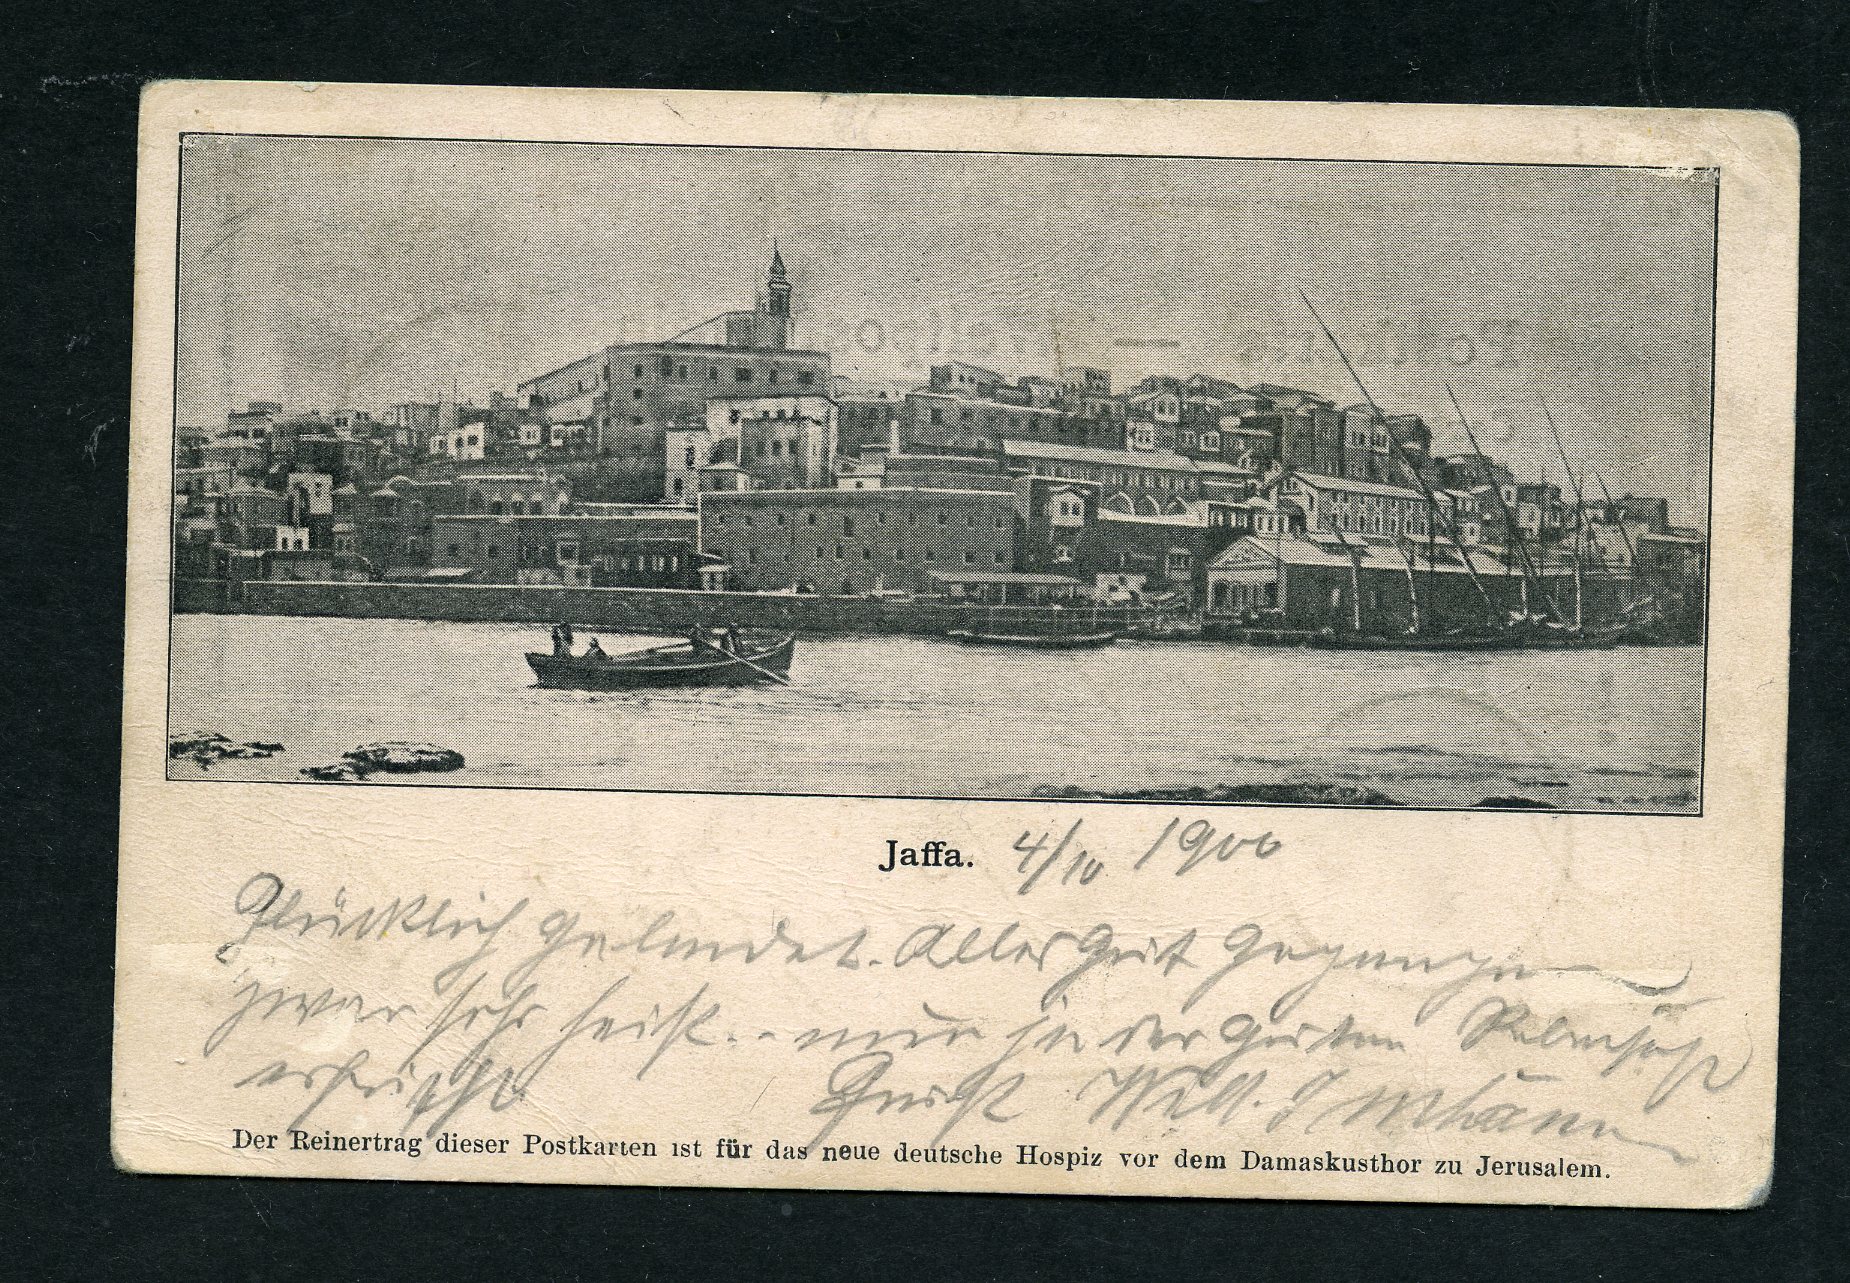 Jaffa. 4/10 1900
Glücklich gelandet. Alles gut gegangen
zwar sehr heiß. - nur in der guten
erfrischt Will.
Der Reinertrag dieser Postkarten ist für das neue deutsche Hospiz vor dem Damaskusthor zu Jerusalem.